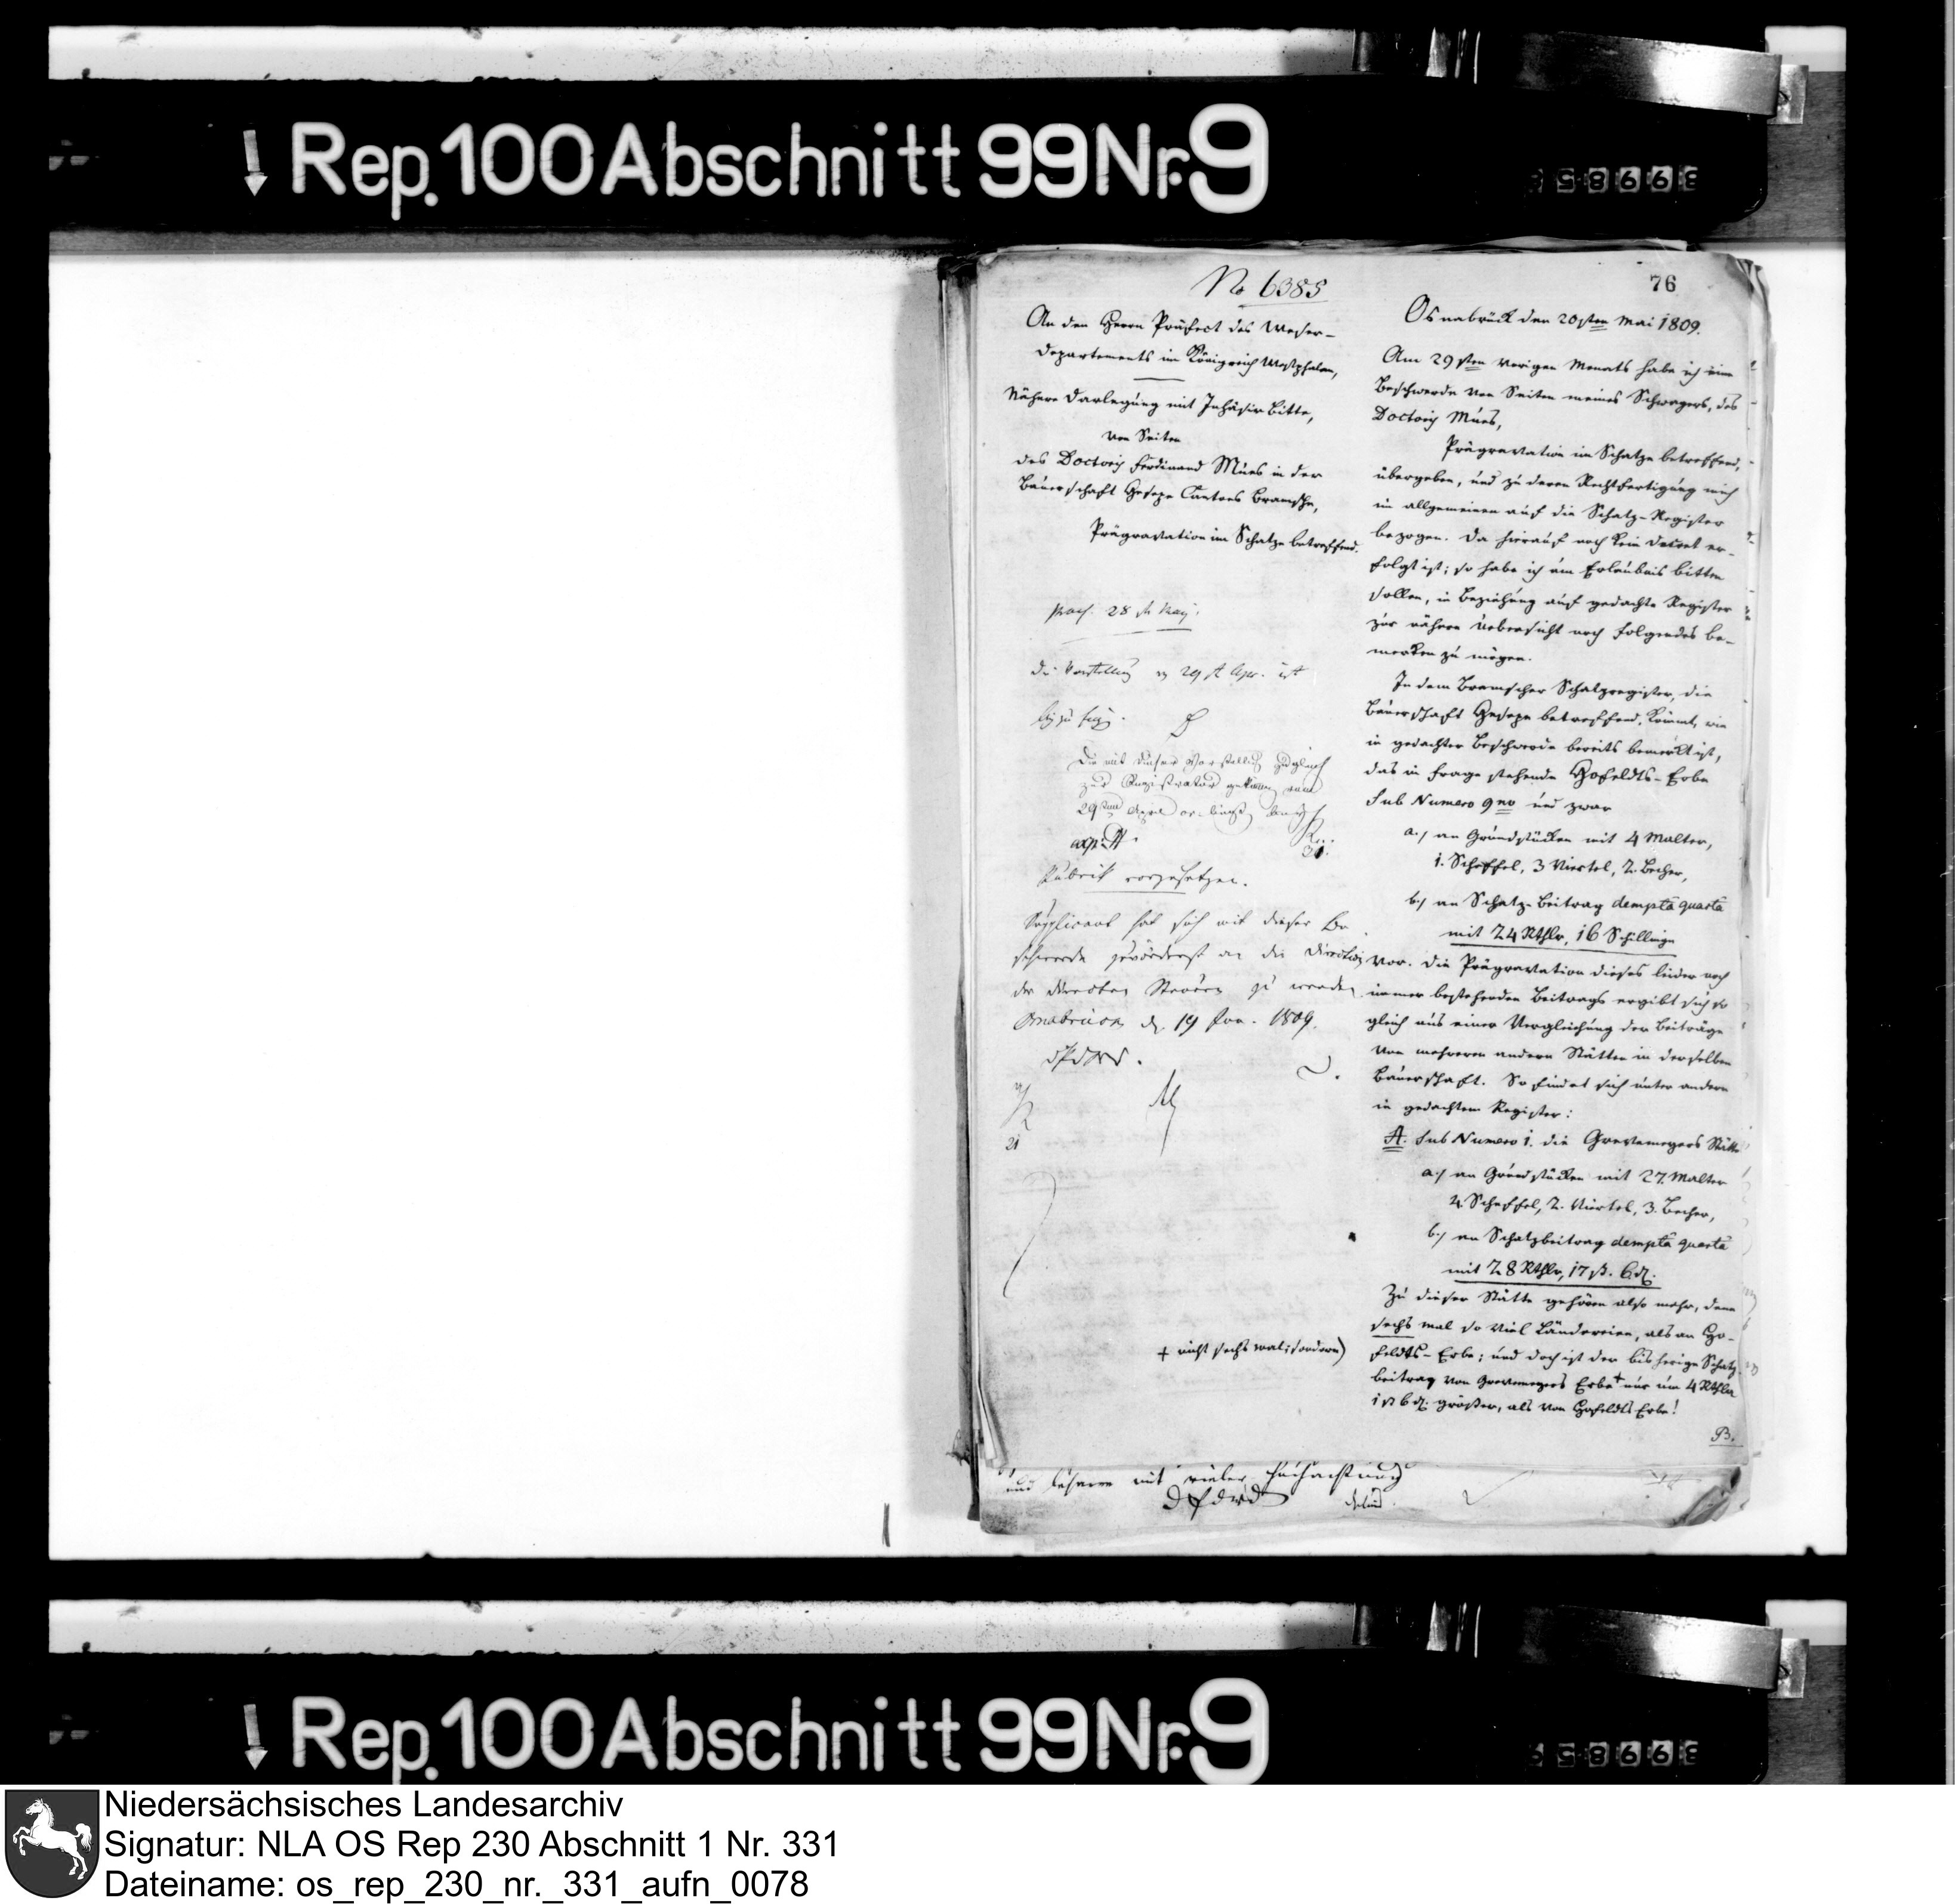 Rep. 100 Abschnitt 99 Nr. 9
No 6385
76
An den Herrn Präfect des Weser-
departements im Königreich Westphalen,
Nähere Darlegung mit Inhäsiv Bitte,
von Seiten
des Doctoris Ferdinand Mües in der
Bäuerschaft Hesepe Cantons Bramsche,
Prägravation im Schatze betreffend.
28 st May.
die Vorstellung 29 st Apr. ist
Die mit dieser Vorstellung zugleich
zur Registratur gekommene vom
29sten April
Rubrik vorzusetzen.
Supplicant hat sich mit dieser Be
schwerde zuvörderst an die Direction
der directen Steuern zu wenden
Osnabrück d. 19 Jun. 1809.
DPDWD.
21
+ nicht sechs mal; sondern)
Osnabrück den 20sten Mai 1809.
Am 29sten vorigen Monats habe ich eine
Beschwerde von Seiten meines Schwagers, des
Doctoris Mües,
Prägravation im Schatze betreffend,
übergeben, und zu deren Rechtfertigung mich
im allgemeinen auf die Schatz-Register
bezogen. Da hierauf noch kein Decret er-
folgt ist; so habe ich um Erlaubnis bitten
sollen, in Beziehung auf gedachte Register
zur nähern Uebersicht noch folgendes be-
merken zu mögen.
In dem Bramscher Schatzregister, die
Bäuerschaft Hesepe betreffend, kömmt, wie
in gedachter Beschwerde bereits bemerkt ist,
das in Frage stehende Hofeldts-Erbe
sub Numero 9no und zwar
a./ an Grundstücken mit 4 Malter,
1. Scheffel, 3 Viertel, 2. Becher,
b./ an Schatz-Beitrag demptâ quartâ
mit 24 Rthlr, 16 Schillinge
vor. Die Prägravation dieses leider noch
immer bestehenden Beitrags ergibt sich so
gleich aus einer Vergleichung der Beiträge
von mehreren andern Stätten in derselben
Bäuerschaft. So findet sich unter andern
in gedachtem Register:
A. sub Numero 1. die Grevemeyers Stätte
a./ an Grundstücken mit 27. Malter
4. Scheffel, 2. Viertel, 3. Becher,
b./ an Schatzbeitrag demptâ quartâ
mit 28 Rthlr, 17 ß. 6 d.
Zu dieser Stätte gehören also mehr, denn
sechs mal so viel Ländereien, als an Ho-
feldts-Erbe; und doch ist der bisherige Schatz-
beitrag von Grevemeyers Erbe + nur um 4 Rthlr
1 ß 6 d. größer, als von Hofeldts Erbe!
B.
mit vieler Hochachtung
DPDWD
Rep. 100 Abschnitt 99 Nr. 9
Niedersächsisches Landesarchiv
Signatur: NLA OS Rep 230 Abschnitt 1 Nr. 331
Dateiname: os_rep_230_nr._331_aufn_0078